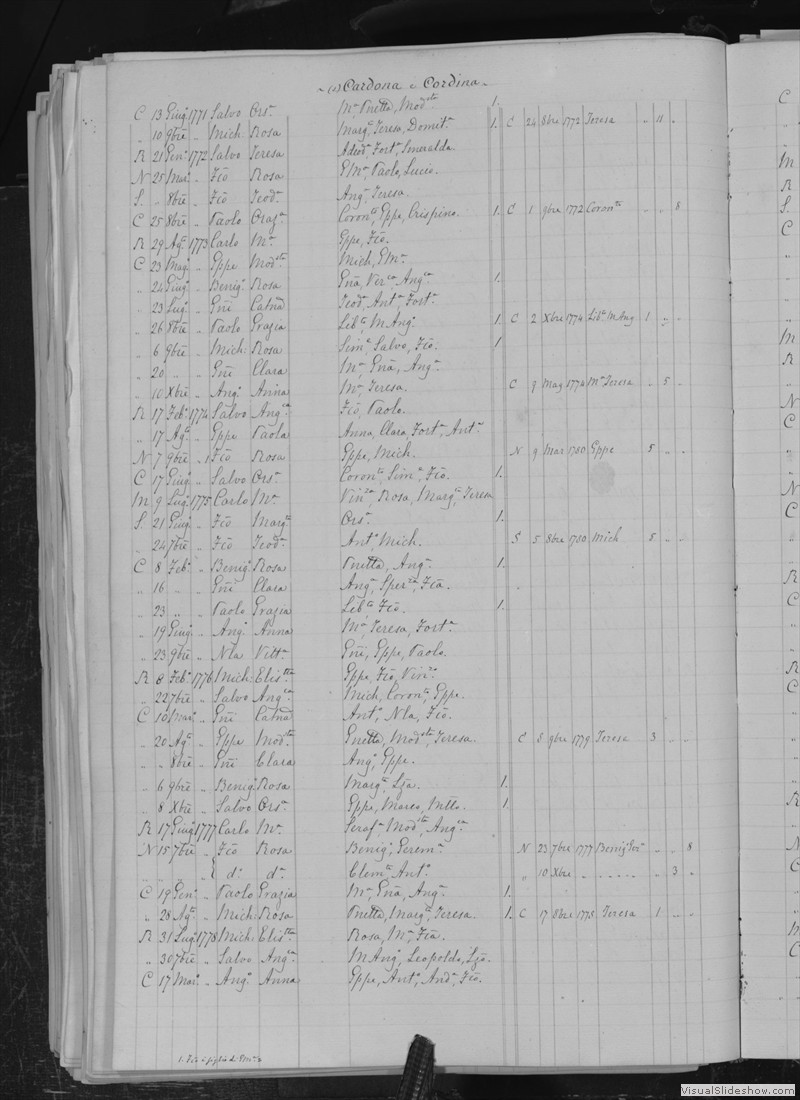 (1) Cardona e Cordina
C 13 Giug. 1771 Salvo Ors.ª Mª Pnetta, Mod.sta 1.
„ 10 9bre „ Mich. Rosa Marg.ª Teresa, Domit.ª 1. C 24 8bre 1772 Teresa „ 11 „
R 21 Gen. 1772 Salvo Teresa Adeod.ª Fort.ª Smeralda.
N 25 Mar. „ Fco Rosa EMª Paolo, Lucio.
S. „ 8bre „ Fco Teod.ª Ang.ª Teresa.
C 25 8bre „ Paolo Graz.ª Coron.ta, Gppe, Crispino. 1. C 1 9bre 1772 Coron.ta „ „ 8
R 29 Ag. 1773 Carlo Mª Gppe, Fco.
C 23 Mag. „ Gppe Mod.sta Mich, EMª
„ 24 Giug. „ Benig. Rosa Gna, Vin.za Ang.ca 1.
„ 23 Lug. „ Gni Catna Teod, Ant.ª Fort.ª
„ 26 8bre „ Paolo Grazia Lib.ta M Ang. 1. C 2 Xbre 1774 Lib.ª M Ang 1 „ „
„ 6 9bre „ Mich. Rosa Sim.e Salvo, Fco. 1
„ 20 „ „ Gni Clara Mª Gna, Ang.ª
„ 10 Xbre „ Ang. Anna Mª Teresa. C 9 Mag 1774 Mª Teresa „ 5 „
R 17 Feb. 1774 Salvo Ang.ca Fco, Paolo.
„ 17 Ag. „ Gppe Paola Anna, Clara, Fort.ª Ant.ª
N 7 9bre „ 1 Fco Rosa Gppe, Mich. N 9 Mar 1780 Gppe 5 „ „
C 17 Giug. „ Salvo Ors.ª Coron.to Sim.e Fco. 1.
M 9 Lug. 1775 Carlo Mª Vin.za Rosa, Marg.ta Teresa
S. 21 Giug. „ Fco Marg.ta Ors.ª 1.
„ 24 7bre „ Fco Teod.ª Ant. Mich. S 5 8bre 1780 Mich 5 „ „
C 8 Feb. „ Benig. Rosa Pnetta, Ang.ª 1.
„ 16 „ „ Gni Clara Ang.ª Sper.za Fca.
„ 23 „ „ Paolo Grazia Lib.ta Fco. 1.
„ 19 Giug. „ Ang. Anna Mª Teresa, Fort.ª
„ 23 9bre „ Nla Vitt.ª Gni, Gppe, Paolo.
R 8 Feb. 1776 Mich. Elis.tta Gppe, Fco, Vin.zo
„ 22 7bre „ Salvo Ang.ca Mich, Coron.to Gppe.
C 10 Mar. „ Gni Catna Ant. Nla, Fco.
„ 20 Ag. „ Gppe Mod.sta Gnetta, Mod.sta Teresa. C 5 9bre 1779 Teresa 3 „ „
„ „ 8bre „ Gni Clara Ang. Gppe.
„ 6 9bre „ Benig. Rosa Marg.ta Lza. 1.
„ 8 Xbre „ Salvo Ors.ª Gppe, Marco, 1
R 17 Giug. 1777 Carlo Mª Seraf.ª Mod.sta Ang.ca
N 15 7bre „ Fco Rosa Benig. Gerem.ª N 23 7bre 1777 Benig. „ „ 8
„ „ „ „ d.º d.ª Clem.te Ant. „ 10 Xbre „ „ „ 3 „
C 19 Gen. „ Paolo Grazia Mª Gna, Ang.ª 1.
„ 28 Ag. „ Mich. Rosa Pnetta, Marg.ta Teresa. 1. C 17 8bre 1775 Teresa 1 „ „
R 31 Lug. 1778 Mich. Elis.tta Rosa, Mª Fca.
„ 30 7bre „ Salvo Ang.ca M Ang. Leopoldo, Lzo.
C 17 Mar. „ Ang. Anna Gppe, Ant. And.ª Fco.
VisualSlideshow.com